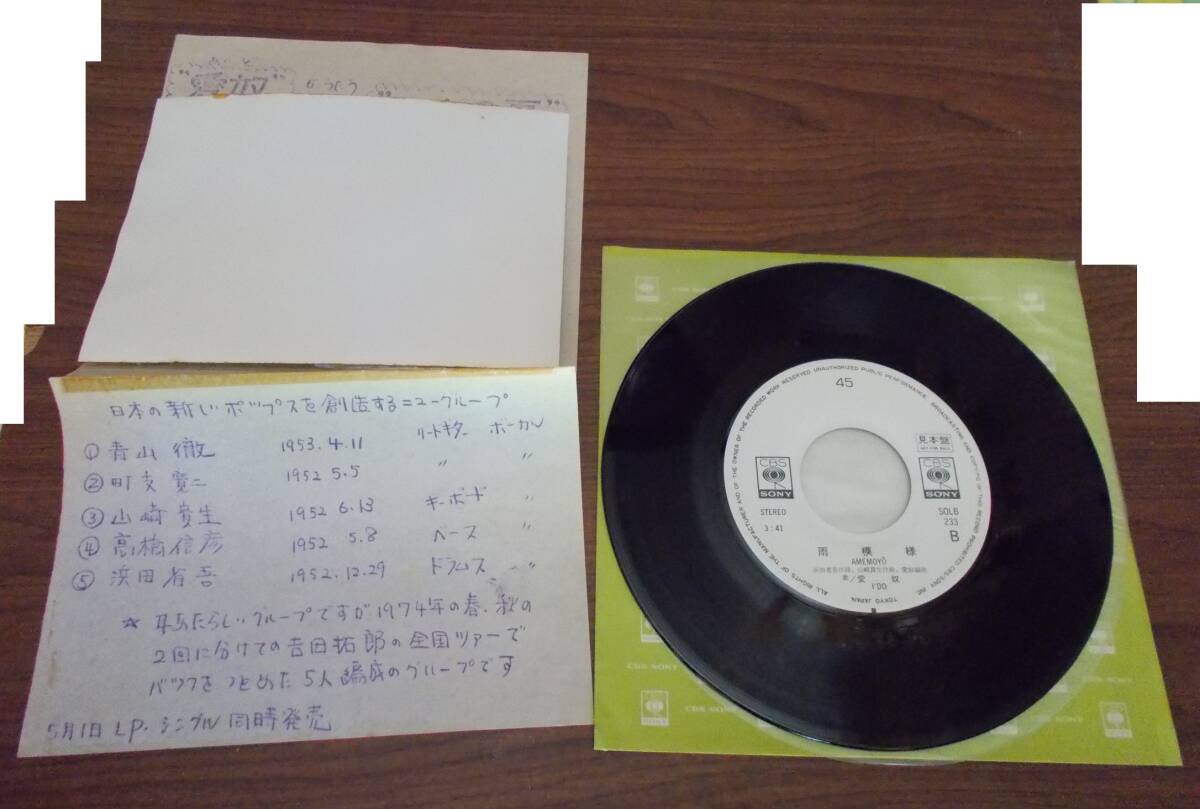 "愛奴"
日本の新しいポップスを創造するニューグループ
① 青山 徹 1953.4.11 リードギター ボーカル
② 町支寛二 1952 5.5 〃 〃
③ 山崎貴生 1952 6.13 キーボード 〃
④ 高橋信彦 1952 5.8 ベース 〃
⑤ 浜田省吾 1952.12.29 ドラムス 〃
☆ 耳あたらしいグループですが1974年の春、秋の
2回に分けての吉田拓郎の全国ツアーで
バックをつとめた5人編成のグループです
5月1日 LP. シングル同時発売
45
見本盤
NOT FOR SALE
CBS
SONY
CBS
SONY
STEREO
3:41
SOLB
233
B
雨模様
AMEMOYŌ
浜田省吾作詩、山崎貴生作曲、愛奴編曲
歌/愛奴
I'DO
ALL RIGHTS OF THE MANUFACTURER AND OF THE OWNER OF THE RECORDED WORK RESERVED UNAUTHORIZED PUBLIC PERFORMANCE, BROADCASTING AND COPYING OF THIS RECORD PROHIBITED CBS/SONY INC. TOKYO JAPAN
CBS SONY
CBS SONY
CBS SONY